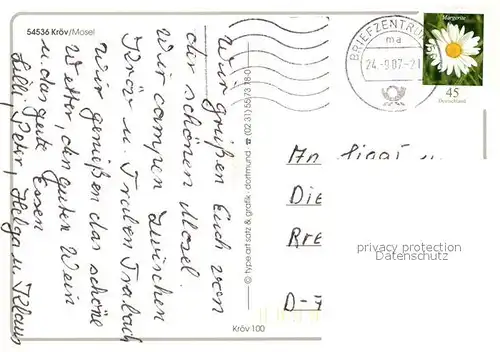 54536 Kröv/Mosel
Wir grüßen Euch von
der schönen Mosel.
Wir campen zwischen
Kröv u. Traben Trabach
Wir genießen das schöne
Wetter, den guten Wein
u das gute Essen
Lilli, Peter, Helga u. Klaus
© type art satz & grafik · dortmund ☎ (02 31) 55 73 18-0
Kröv 100
BRIEFZENTRUM
ma
24.-9.07-21
Margerite
45
Deutschland
An
Die
D-7
privacy protection
Datenschutz